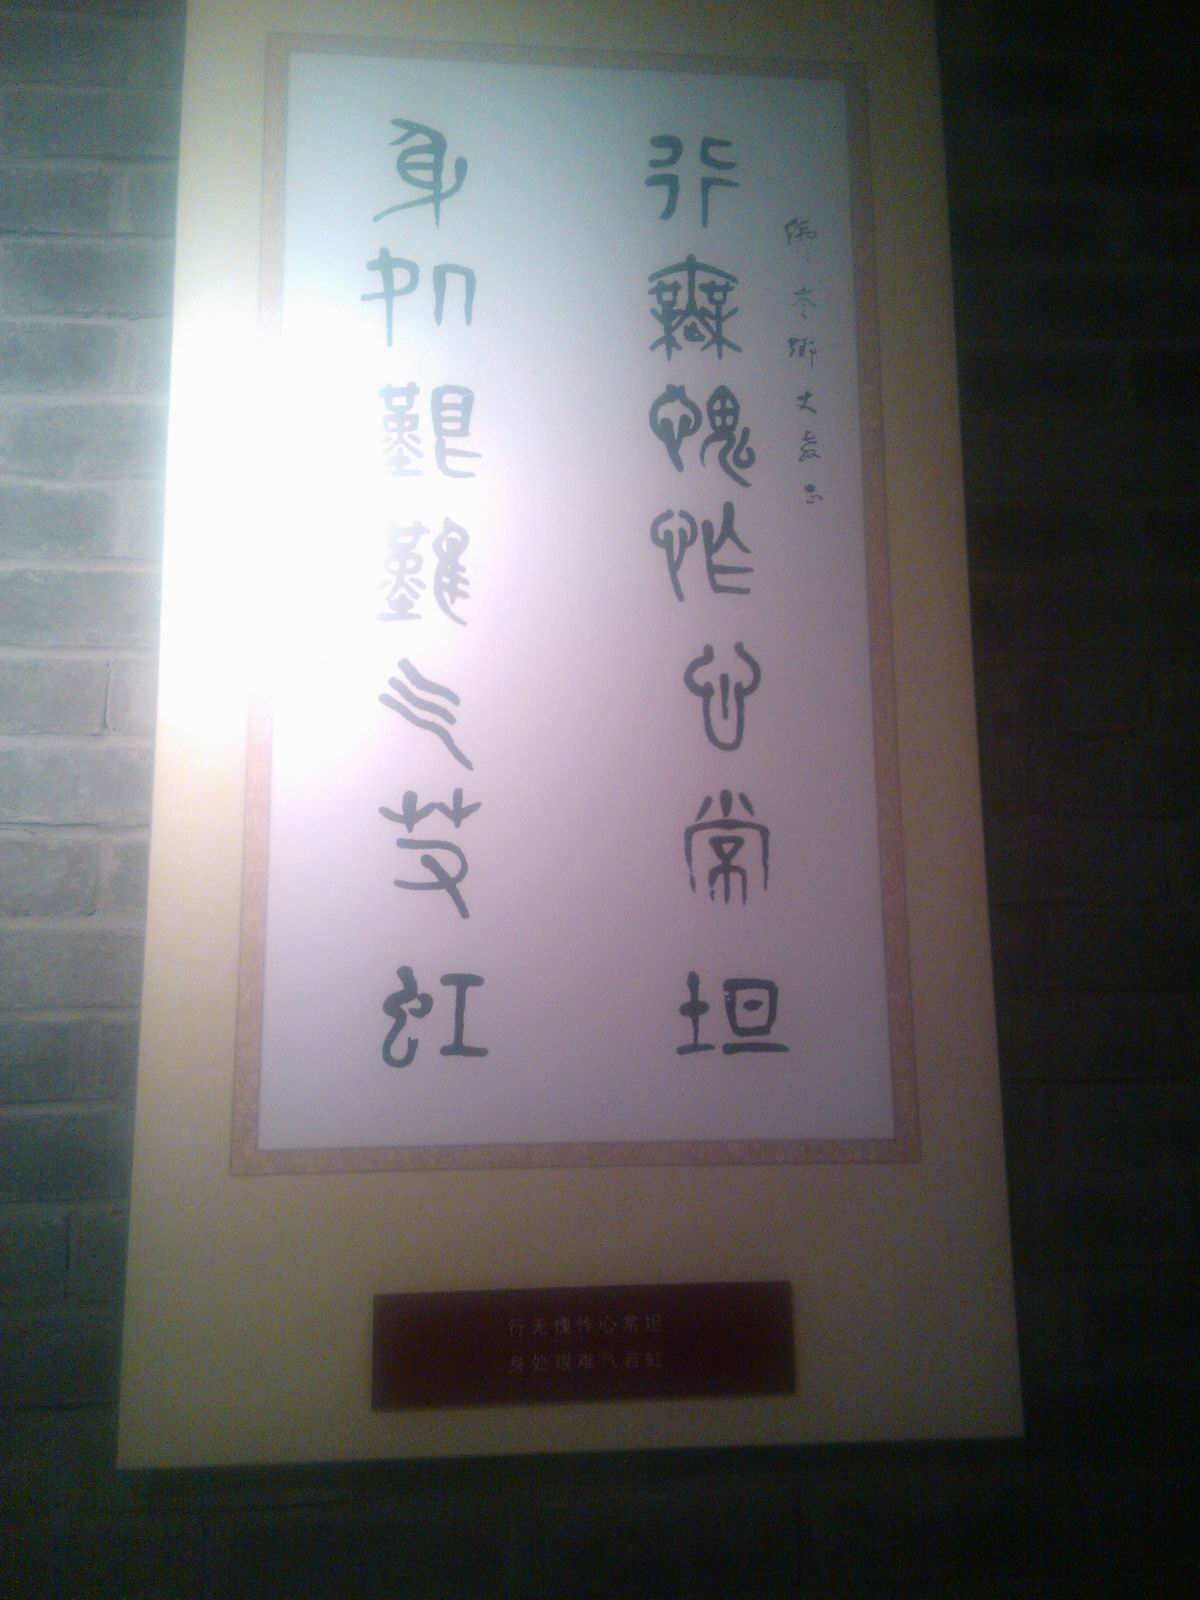 行無愧怍心常坦
身処艱難气若虹
行无愧怍心常坦
身处艰难气若虹